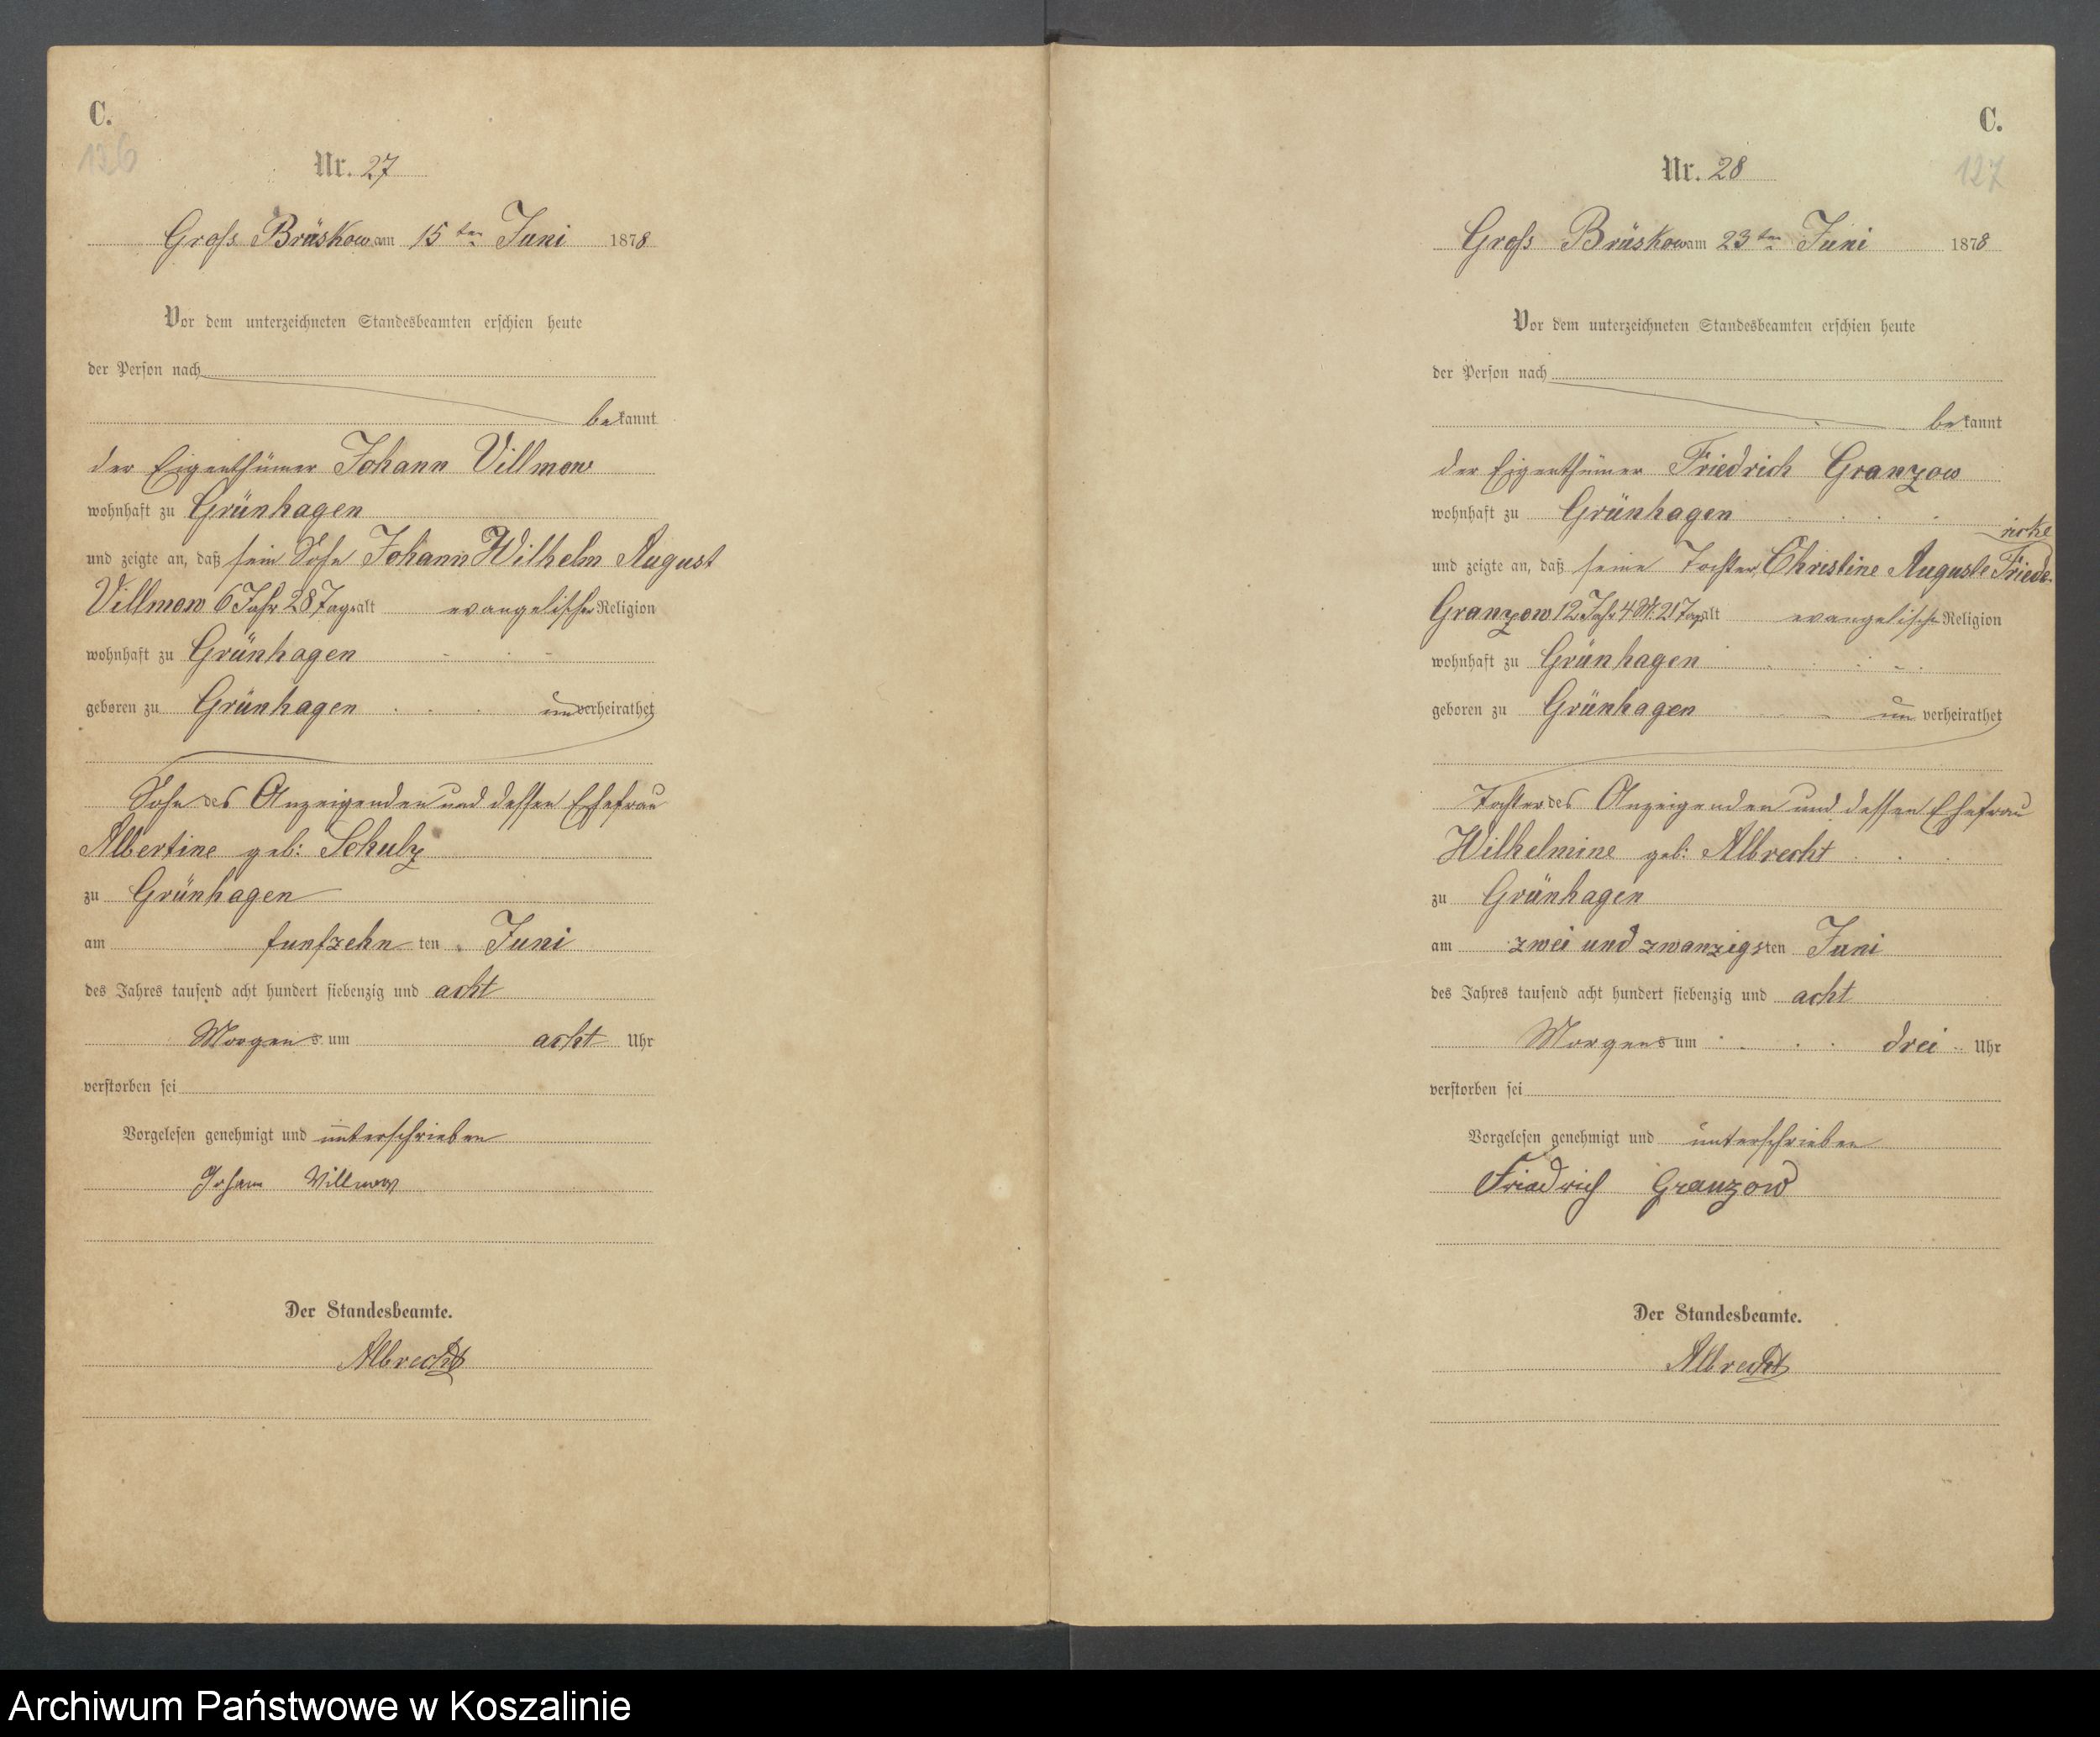 C.
126
Nr. 27
Groß Brüskow am 15ten Juni 1878
Vor dem unterzeichneten Standesbeamten erschien heute
der Person nach
bekannt
der Eigenthümer Johann Villmow
wohnhaft zu Grünhagen
und zeigte an, daß sein Sohn Johann Wilhelm August
Villmow 6 Jahr 28 Tage alt evangelischer Religion
wohnhaft zu Grünhagen
geboren zu Grünhagen unverheirathet
Sohn des Anzeigenden und dessen Ehefrau
Albertine geb: Schulz
zu Grünhagen
am funfzehnten Juni
des Jahres tausend acht hundert siebenzig und acht
Morgens um acht Uhr
verstorben sei
Vorgelesen genehmigt und unterschrieben
Johann Villmow
Der Standesbeamte.
Albrecht
C.
127
Nr. 28
Groß Brüskow am 23ten Juni 1878
Vor dem unterzeichneten Standesbeamten erschien heute
der Person nach
bekannt
der Eigenthümer Friedrich Granzow
wohnhaft zu Grünhagen
ricke
und zeigte an, daß seine Tochter Christine Auguste Friede-
Granzow 12 Jahr 4 M. 21 Tage alt evangelische Religion
wohnhaft zu Grünhagen
geboren zu Grünhagen unverheirathet
Tochter des Anzeigenden und dessen Ehefrau
Wilhelmine geb: Albrecht
zu Grünhagen
am zwei und zwanzigsten Juni
des Jahres tausend acht hundert siebenzig und acht
Morgens um drei Uhr
verstorben sei
Vorgelesen genehmigt und unterschrieben
Friedrich Granzow
Der Standesbeamte.
Albrecht
Archiwum Państwowe w Koszalinie